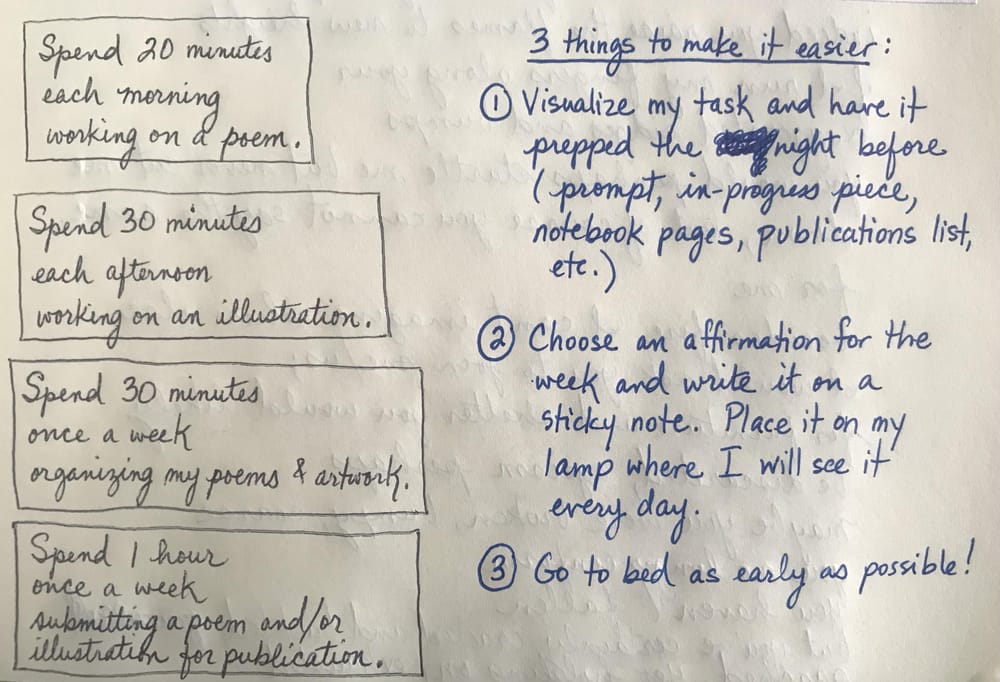 Spend 20 minutes
each morning
working on a poem.
Spend 30 minutes
each afternoon
working on an illustration.
Spend 30 minutes
once a week
organizing my poems & artwork.
Spend 1 hour
once a week
submitting a poem and/or
illustration for publication.
3 things to make it easier:
① Visualize my task and have it
prepped the night before
(prompt, in-progress piece,
notebook pages, publications list,
etc.)
② Choose an affirmation for the
week and write it on a
sticky note. Place it on my
lamp where I will see it
every day.
③ Go to bed as early as possible!